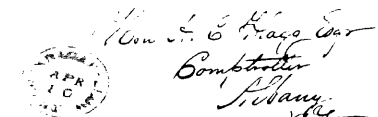 Hon A C Flagg Esqr
Comptroller
Albany
APR
10